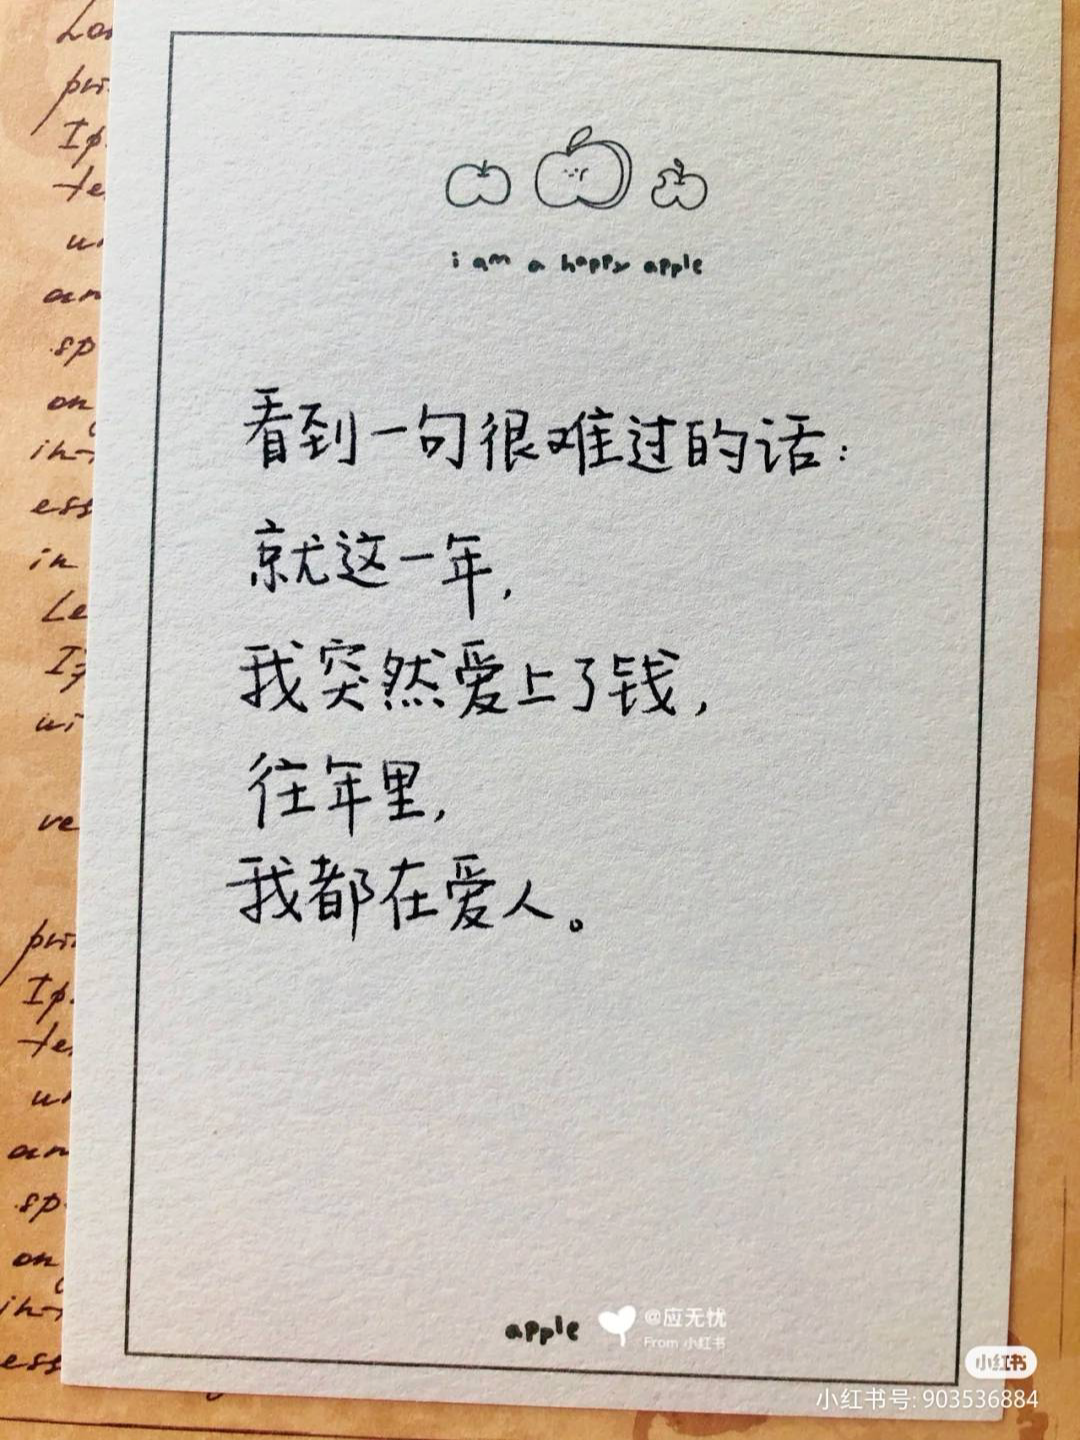 i am a happy apple
看到一句很难过的话：
就这一年，
我突然爱上了钱，
往年里，
我都在爱人。
apple
@应无忧
From 小红书
小红书
小红书号: 903536884